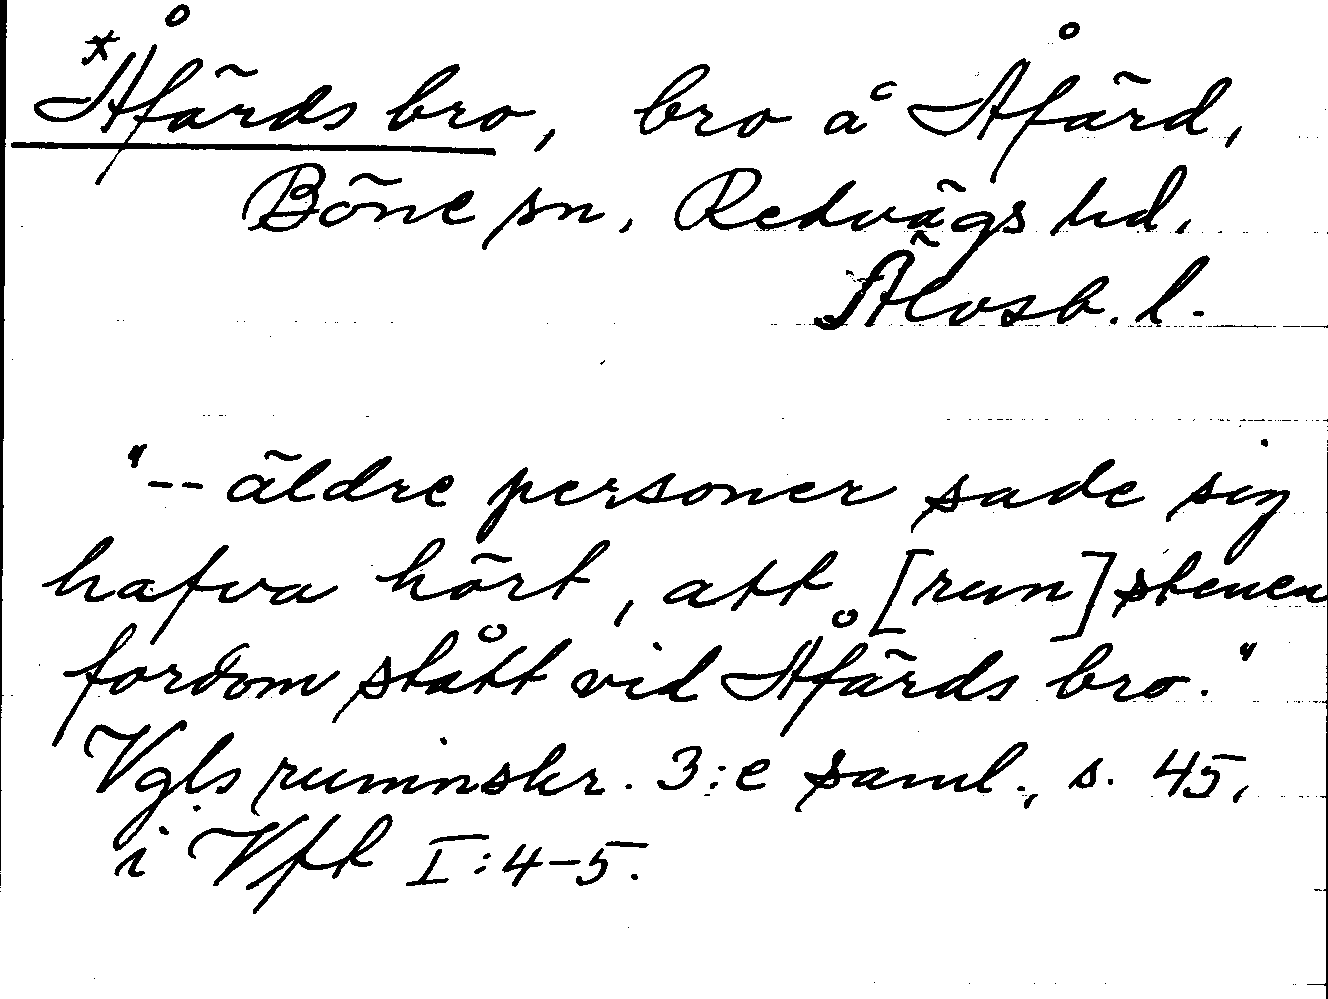 *Åfärds bro, bro å Åfärd,
Böne sn, Redvägs hd.
Älvsb. l.
"-- äldre personer sade sig
hafva hört, att [run]stenen
fordom stått vid Åfärds bro."
Vgls runinskr. 3:e saml., s. 45,
i Vft I:4-5.